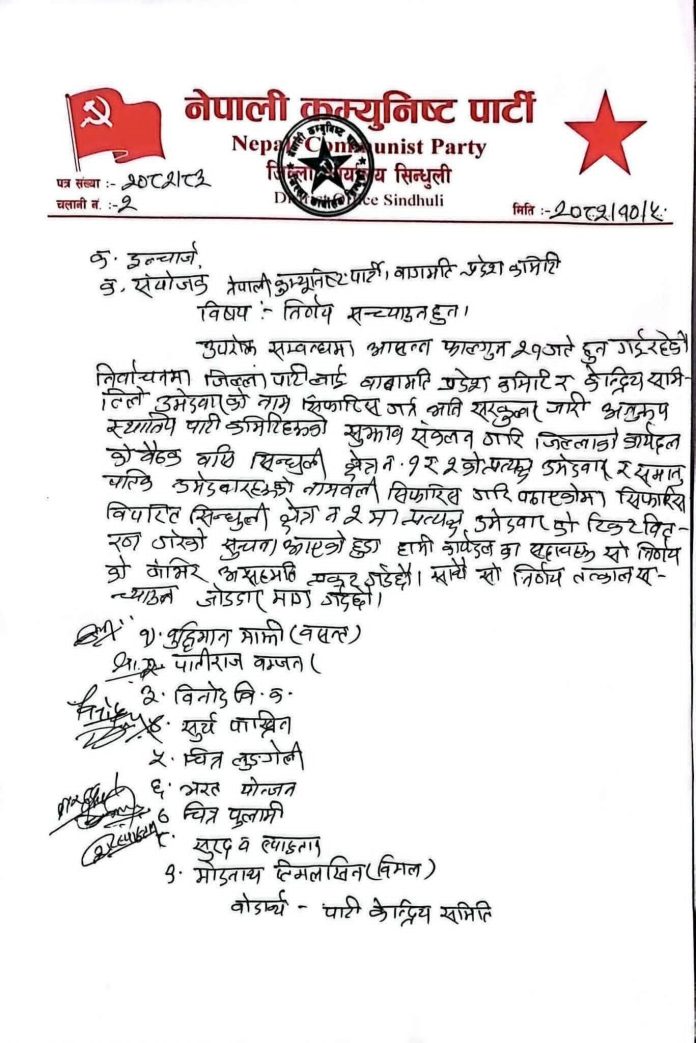 नेपाली कम्युनिष्ट पार्टी
Nepal Communist Party
जिल्ला कार्यालय सिन्धुली
District Office Sindhuli
पत्र संख्या :- २०८२/८३
चलानी नं. :- २
मिति :- २०८२/१०/५
क. इन्चार्ज
क. संयोजक नेपाली कम्यूनिष्ट पार्टी, बागमति प्रदेश कमिटि
विषय :- निर्णय सच्याउन हुन ।
उपरोक्त सम्बन्धमा आसन्न फाल्गुन २१ गते हुन गईरहेको
निर्वाचनमा जिल्ला पार्टी लाई बागमति प्रदेश कमिटि र केन्द्रिय समि-
तिले उमेदवारको नाम सिफारिस गर्न भनि सरकुलर जारी अनुरूप
स्थानिय पार्टी कमिटिहरुको सुझाव संकलन गरि जिल्लाको कार्यदल
को बैठक बसि सिन्धुली क्षेत्र न. १ र २ को प्रत्यक्ष उमेदवार र समानु
पातिक उमेदवारहरुको नामवली सिफारिस गरि पठाएकोमा सिफारिस
विपरित सिन्धुली क्षेत्र न २ मा प्रत्यक्ष उमेदवार को टिकट वित-
रण गरेको सुचना आएको हुदा हामी कार्यदल का सदस्यहरु सो निर्णय
को गंभिर असहमति प्रकट गर्दछौ। साथै सो निर्णय तत्काल स-
च्याउन जोडदार माग गर्दछौ।
१. बुद्धिमान माझी (वसन्त)
२. पातीराज बम्जन (
३. विनोद वि. क.
४. सुर्य पाख्रिन
५. चित्र लुङगेली
६. भरत योन्जन
७ चित्र पुलामी
८.
९. मोदनाथ तिमलसिन (विमल)
बोधार्थ - पार्टी केन्द्रिय समिति